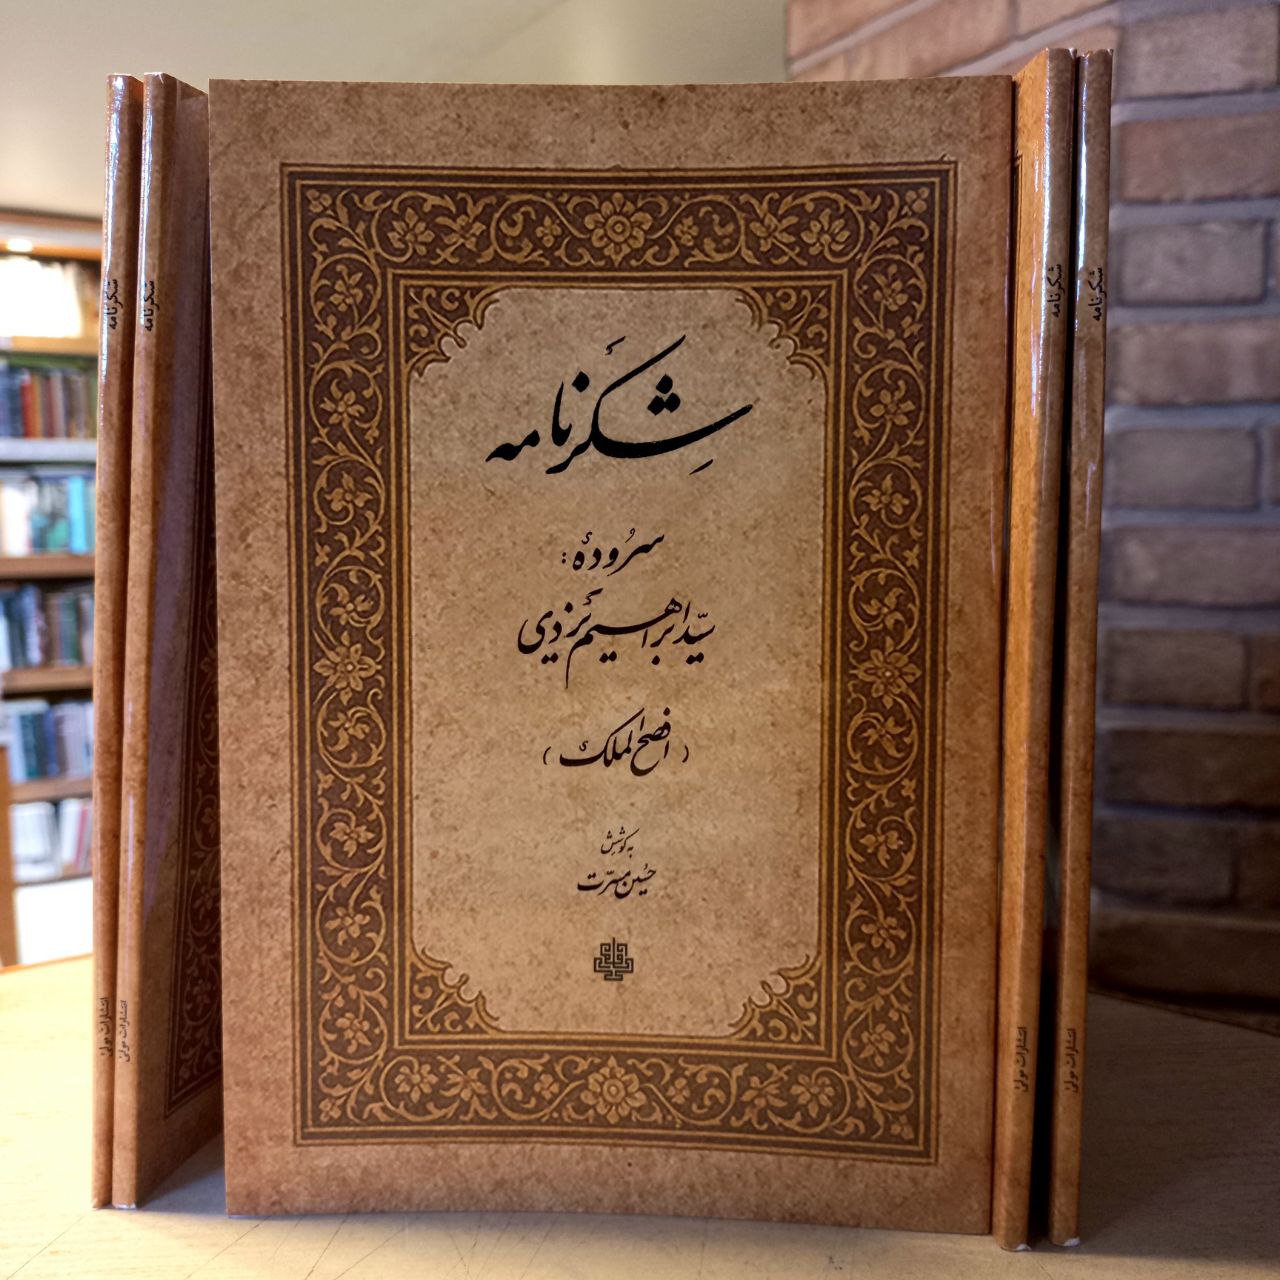 شِکَرنامه
سرُودهٔ :
سیّد ابراهیم یَزدی
( افصح الملک )
به کوشش
حُسین مسرّت
شکرنامه
انتشارات مولی
شکرنامه
انتشارات مولی
شکرنامه
انتشارات مولی
شکرنامه
انتشارات مولی